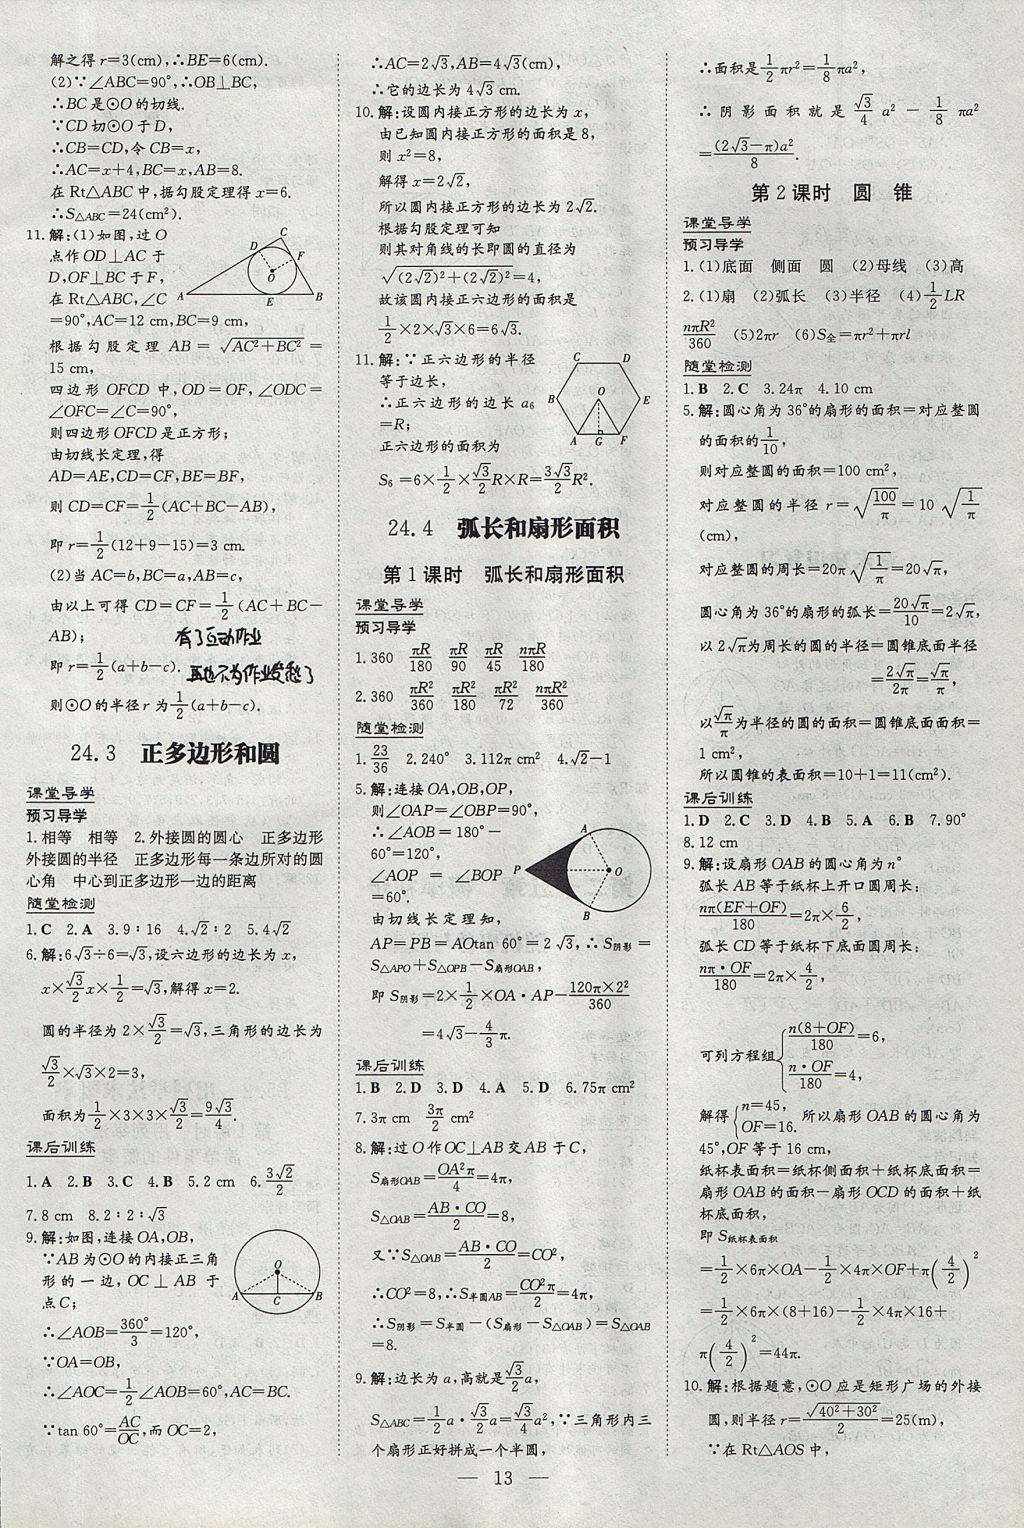 解之得r=3(cm),∴BE=6(cm).
(2)∵∠ABC=90°,∴OB⊥BC,
∴BC是⊙O的切线.
∵CD切⊙O于D,
∴CB=CD,令CB=x,
∴AC=x+4,BC=x,AB=8.
在Rt△ABC中,据勾股定理得x=6.
∴S△ABC=24(cm²).
11.解:(1)如图,过O
点作OD⊥AC于
D,OF⊥BC于F,
在Rt△ABC,∠C
=90°,AC=12 cm,BC=9 cm,
根据勾股定理AB=√(AC²+BC²)=
15 cm,
四边形OFCD中,OD=OF,∠ODC=
∠OFC=∠C=90°,
则四边形OFCD是正方形;
由切线长定理,得
AD=AE,CD=CF,BE=BF,
则CD=CF=1/2(AC+BC-AB),
即r=1/2(12+9-15)=3 cm.
(2)当AC=b,BC=a,AB=c,
由以上可得CD=CF=1/2(AC+BC-
AB);
有了互动作业
即r=1/2(a+b-c).
再也不为作业发愁了
则⊙O的半径r为1/2(a+b-c).
24.3 正多边形和圆
课堂导学
预习导学
1.相等 相等 2.外接圆的圆心 正多边形
外接圆的半径 正多边形每一条边所对的圆
心角 中心到正多边形一边的距离
随堂检测
1.C 2.A 3.9∶16 4.√2∶2 5.4√2
6.解:6√3÷6=√3,设六边形的边长为x,
x×√3/2x×1/2=√3,解得x=2.
圆的半径为2×√3/2=√3,三角形的边长为
√3/2×√3×2=3,
面积为1/2×3×3×√3/2=9√3/4.
课后训练
1.A 2.B 3.C 4.B 5.2 cm 6.3√2/2
7.8 cm 8.2∶2∶√3
9.解:如图,连接OA,OB,
∵AB为⊙O的内接正三角
形的一边,OC⊥AB于
点C;
∴∠AOB=360°/3=120°,
∵OA=OB,
∴∠AOC=1/2∠AOB=60°,AC=BC.
∵tan 60°=AC/OC,而OC=2,
∴AC=2√3,AB=4√3(cm),
∴它的边长为4√3 cm.
10.解:设圆内接正方形的边长为x,
由已知圆内接正方形的面积是8,
则x²=8,
解得x=2√2,
所以圆内接正方形的边长为2√2.
根据勾股定理可知
则其对角线的长即圆的直径为
√((2√2)²+(2√2)²)=4,
故该圆内接正六边形的面积是
1/2×2×√3×6=6√3.
11.解:∵正六边形的半径
等于边长,
∴正六边形的边长a₆
=R;
正六边形的面积为
S₆=6×1/2×√3/2R×R=3√3/2R².
24.4 弧长和扇形面积
第1课时 弧长和扇形面积
课堂导学
预习导学
1.360 πR/180 πR/90 πR/45 nπR/180
2.360 πR²/360 πR²/180 πR²/72 nπR²/360
随堂检测
1.23/36 2.240° 3.112π cm² 4.√2-1
5.解:连接OA,OB,OP,
则∠OAP=∠OBP=90°,
∴∠AOB=180°-
60°=120°,
∠AOP=∠BOP
=60°.
由切线长定理知,
AP=PB=AOtan 60°=2√3,∴S阴影=
S△APO+S△OPB-S扇形OAB,
即S阴影=2×1/2×OA·AP-120π×2²/360
=4√3-4/3π.
课后训练
1.B 2.D 3.D 4.A 5.D 6.75π cm²
7.3π cm 3π/2 cm²
8.解:过O作OC⊥AB交AB于C,
S扇形OAB=OA²π/4=4π,
S△OAB=AB·CO/2=8,
又∵S△OAB=AB·CO/2=CO²,
∴CO²=8,∴S半圆AB=CO²π/2=4π,
∴S阴影=S半圆-(S扇形-S△OAB)=S△OAB
=8.
9.解:边长为a,高就是√3/2a,
S△ABC=1/2a·√3/2a=√3/4a²,∵三角形内三
个扇形正好拼成一个半圆,
∴面积是1/2πr²=1/8πa²,
∴阴影面积就是√3/4a²-1/8πa²
=(2√3-π)a²/8.
第2课时 圆 锥
课堂导学
预习导学
1.(1)底面 侧面 圆 (2)母线 (3)高
2.(1)扇 (2)弧长 (3)半径 (4)1/2LR
nπR²/360 (5)2πr (6)S全=πr²+πrl
随堂检测
1.B 2.C 3.24π 4.10 cm
5.解:圆心角为36°的扇形的面积=对应整圆
的面积的1/10,
则对应整圆的面积=100 cm²,
对应整圆的半径r=√(100/π)=10√(1/π)
(cm),
对应整圆的周长=20π√(1/π)=20√π,
圆心角为36°的扇形的弧长=20√π/10=2√π,
以2√π为周长的圆的半径=圆锥底面半径
=2√π/2π=√π/π,
以√π/π为半径的圆的面积=圆锥底面面积=
1 cm²,
所以圆锥的表面积=10+1=11(cm²).
课后训练
1.D 2.C 3.D 4.B 5.A 6.B 7.90°
8.12 cm
9.解:设扇形OAB的圆心角为n°
弧长AB等于纸杯上开口圆周长:
nπ(EF+OF)/180=2π×6/2,
弧长CD等于纸杯下底面圆周长:
nπ·OF/180=2π×4/2,
可列方程组{n(8+OF)/180=6,
n·OF/180=4,
解得{n=45, OF=16. 所以扇形OAB的圆心角为
45°,OF等于16 cm,
纸杯表面积=纸杯侧面积+纸杯底面积=
扇形OAB的面积-扇形OCD的面积+纸
杯底面积,
即S纸杯表面积
=1/2×6π×OA-1/2×4π×OF+π(4/2)²
=1/2×6π×(8+16)-1/2×4π×16+
π(4/2)²=44π.
10.解:根据题意,⊙O应是矩形广场的外接
圆,则半径r=√(40²+30²)/2=25(m),
∵在Rt△AOS中,
— 13 —